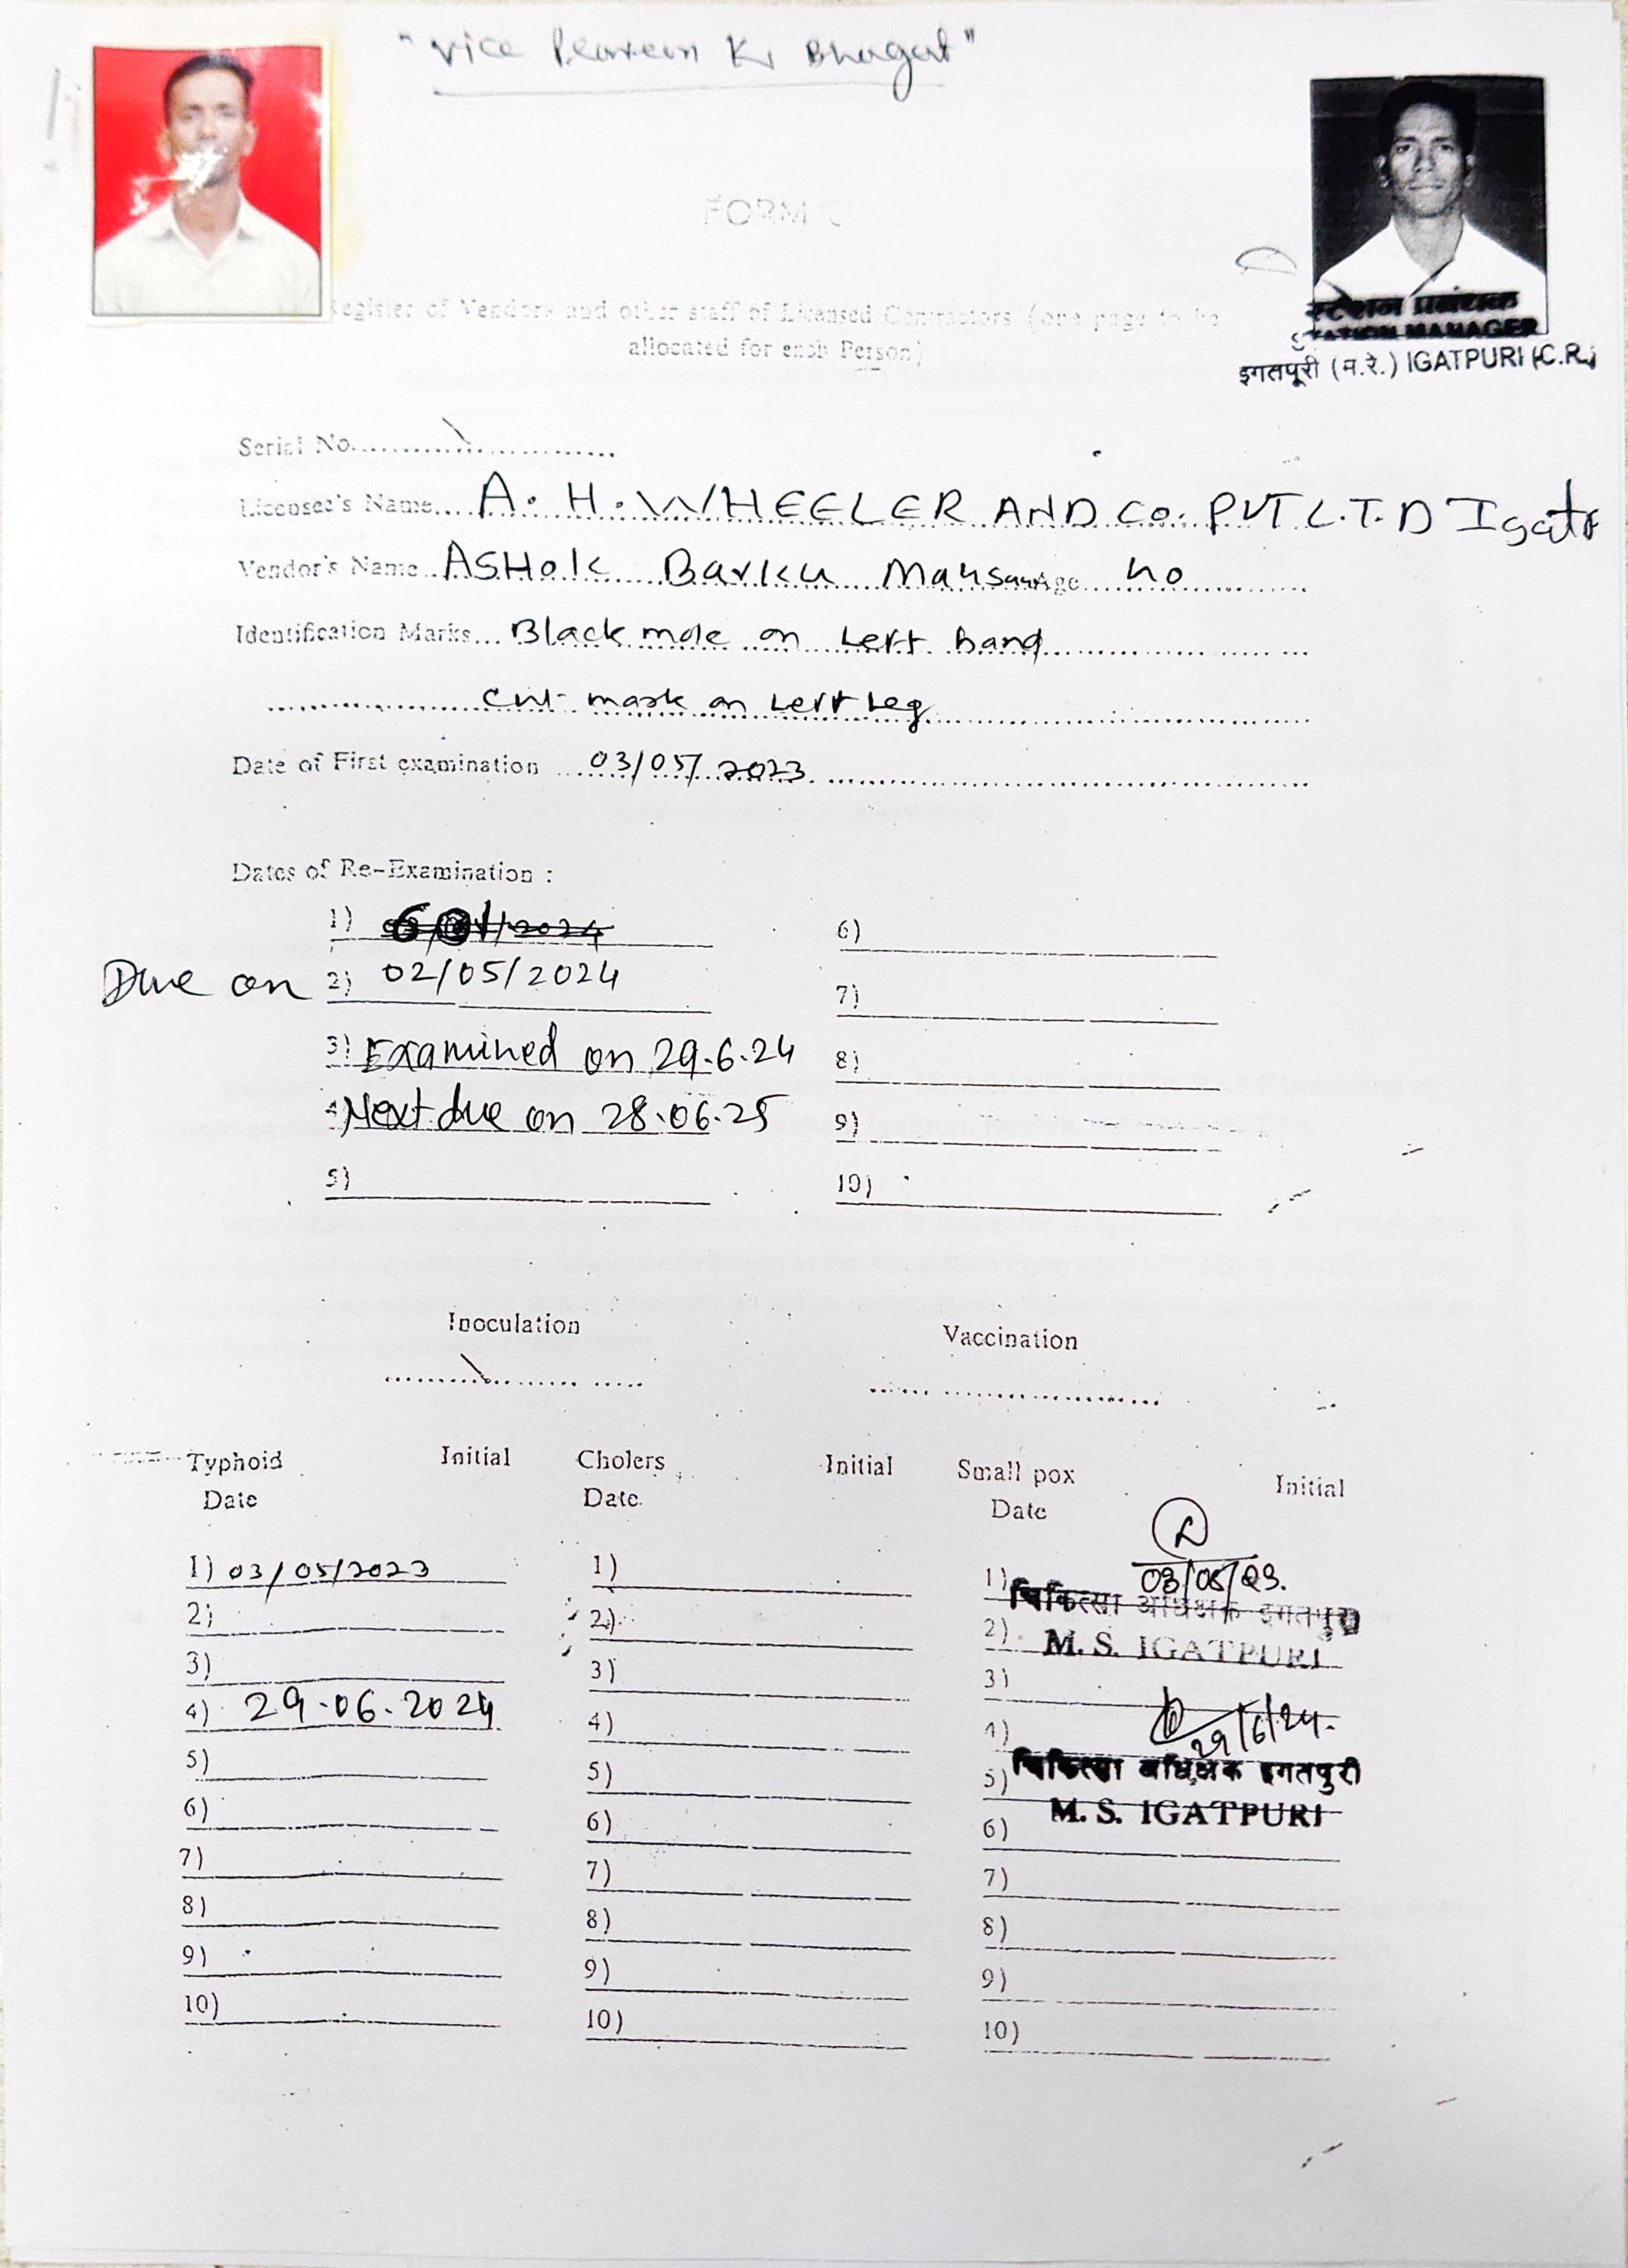 "Vice Praveen Kr Bhagat"
FORM C
Register of Vendors and other staff of Licensed Contractors (one page to be
allocated for each Person)
स्टेशन प्रबंधक
STATION MANAGER
इगतपूरी (म.रे.) IGATPURI (C.R.)
Serial No.
Licensee's Name A. H. WHEELER AND Co. PVT L.T.D Igat
Vendor's Name ASHok Barku Age 40
Identification Marks Black mole on Left hand
Cut mark on Left Leg
Date of First examination 03/05/2023
Dates of Re-Examination :
1) 2024
6)
Due on 2) 02/05/2024
7)
3) Examined on 29.6.24
8)
4) Next due on 28.06.25
9)
5)
10)
Inoculation Vaccination
Typhoid Initial Cholers Initial Small pox Initial
Date Date Date
1) 03/05/2023 1) 1) 03/05/23.
चिकित्सा अधिक्षक इगतपुरी
2) 2) 2) M. S. IGATPURI
3) 3) 3)
4) 29.06.2024 4) 4) 29/6/24.
5) 5) 5) चिकित्सा अधिक्षक इगतपुरी
M. S. IGATPURI
6) 6) 6)
7) 7) 7)
8) 8) 8)
9) 9) 9)
10) 10) 10)